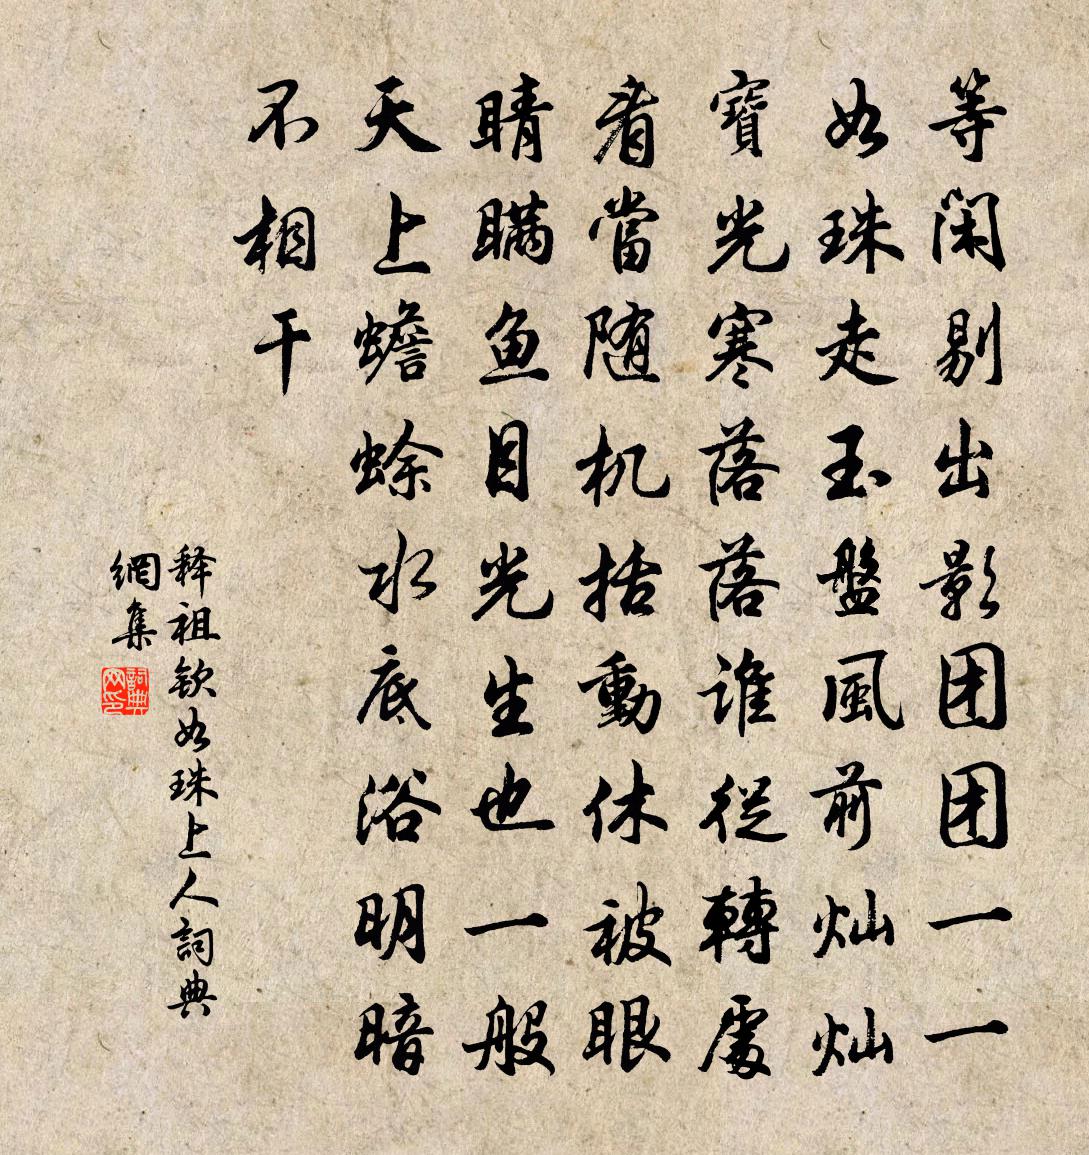 等闲剔出影团团一一
如珠走玉盤風前灿灿
寶光寒落落誰從轉處
看當随机括動休被眼
睛瞒鱼目光生也一般
天上蟾蜍水底浴明暗
不相干
释祖欽如珠上人詞典
網集
詞典
网印